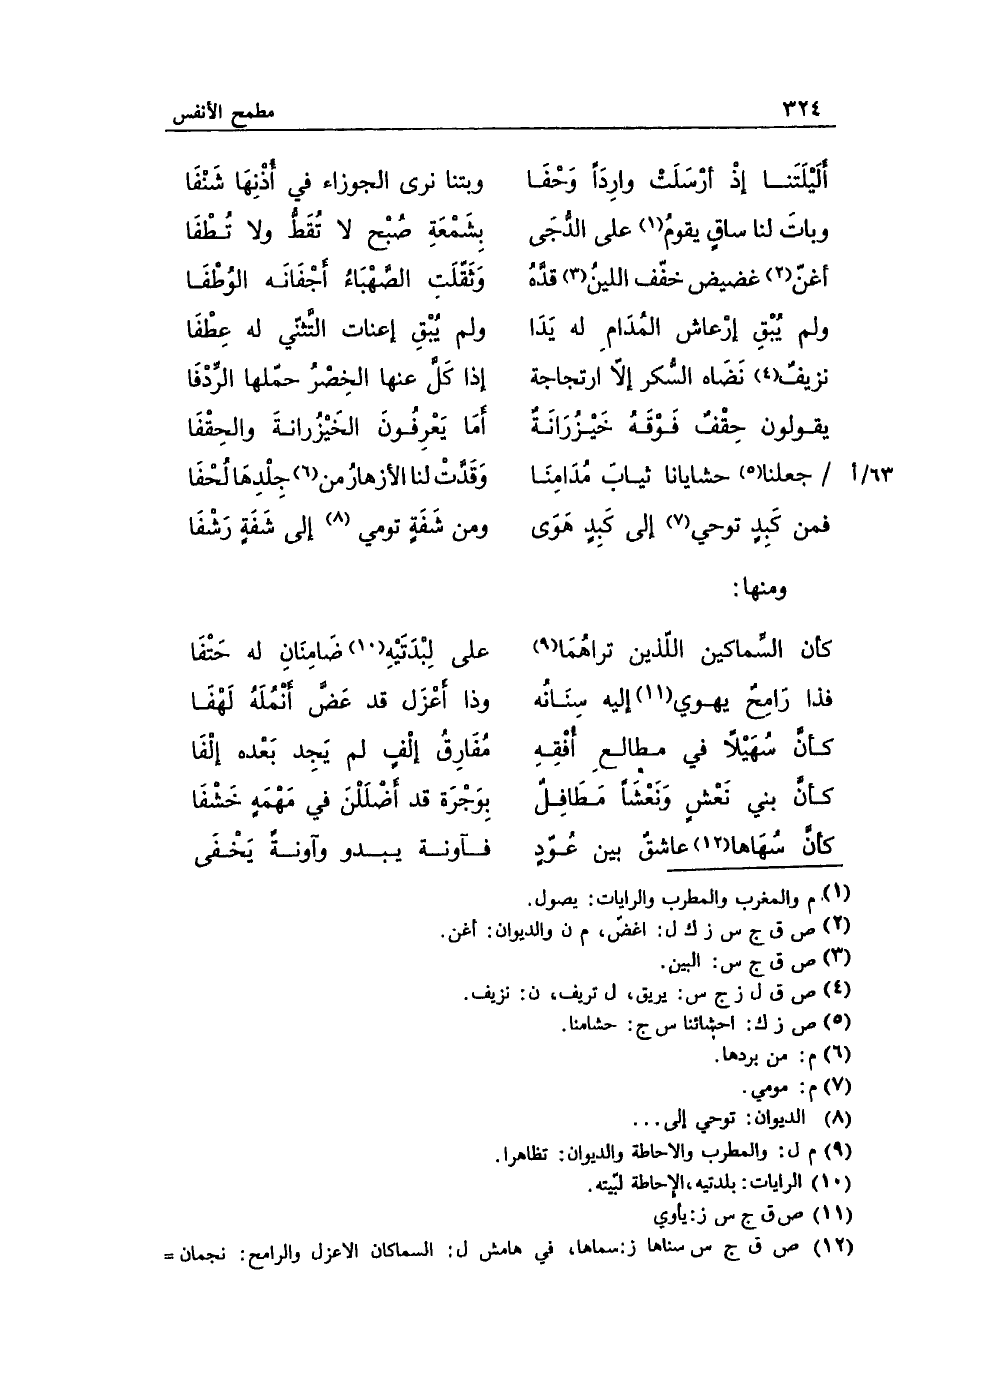 ٣٢٤ مطمح الأنفس
أَلَيْلَتَنـا إذْ أرْسَلَتْ وارِدَاً وَحْفَا وبتنا نرى الجوزاء في أُذْنِهَا شَنْفَا
وباتَ لنا ساقٍ يقومُ(١) على الدُّجَى بِشَمْعَةِ صُبْحٍ لا تُقَطُّ ولا تُـطْفَا
أغنّ(٢) غضيض خفّف اللينُ(٣) قدَّهُ وَثَقَّلَتِ الصَّهْبَاءُ أَجْفَانَـه الوُطْفَـا
ولم يُبْقِ إرْعاش المُدَامِ له يَدَا ولم يُبْقِ إعنات التَّثنّي له عِطْفَا
نزيفٌ(٤) نَضَاه السُّكر إلاّ ارتجاجة إذا كَلَّ عنها الخِصْرُ حمّلها الرِّدْفَا
يقـولون حِقْفٌ فَـوْقَـهُ خَيْـزُرَانَـةٌ أمَا يَعْرِفُـونَ الخَيْزُرانـةَ والحِقْفَا
٦٣/أ / جعلنا(٥) حشايانا ثيابَ مُدَامِنَـا وَقَدَّتْ لنا الأزهارُ من(٦) جِلْدِهَا لُحْفَا
فمن كَبِدٍ توحي(٧) إلى كَبِدٍ هَوَى ومن شَفَةٍ تومي (٨) إلى شَفَةٍ رَشْفَا
ومنها:
كأن السِّماكين اللّذين تراهُمَا(٩) على لِبْدَتَيْهِ(١٠) ضَامِنَانِ له حَتْفَا
فذا رَامِحٌ يهـوي(١١) إليه سِنَـانُه وذا أعْزَل قد عَضَّ أنْمُلَهُ لَهْفَـا
كـأنَّ سُهَيْلًا في مـطالـعِ أُفْقِـهِ مُفَارِقُ إلْفٍ لم يَجِد بَعْده إلْفَا
كـأنَّ بني نَعْشٍ وَنَعْشَاً مَـطَافِـلٌ بِوَجْرَة قد أَضْلَلْنَ في مَهْمَهٍ خَشْفَا
كأنَّ سُهَاها(١٢) عاشقٌ بين عُـوَّدٍ فـآونـة يـبـدو وآونـةٌ يَخْـفَى
(١) م والمغرب والمطرب والرايات: يصول.
(٢) ص ق ج س ز ك ل: اغضّ، م ن والديوان: أغن.
(٣) ص ق ج س: البين.
(٤) ص ق ل ز ج س: يريق، ل تريف، ن: نزيف.
(٥) ص ز ك: احشائنا س ج: حشامنا.
(٦) م: من بردها.
(٧) م: مومي.
(٨) الديوان: توحي إلى...
(٩) م ل: والمطرب والاحاطة والديوان: تظاهرا.
(١٠) الرايات: بلدتيه،الإحاطة لبّيته.
(١١) ص ق ج س ز: يأوي
(١٢) ص ق ج س سناها ز: سماها، في هامش ل: السماكان الاعزل والرامح: نجمان =